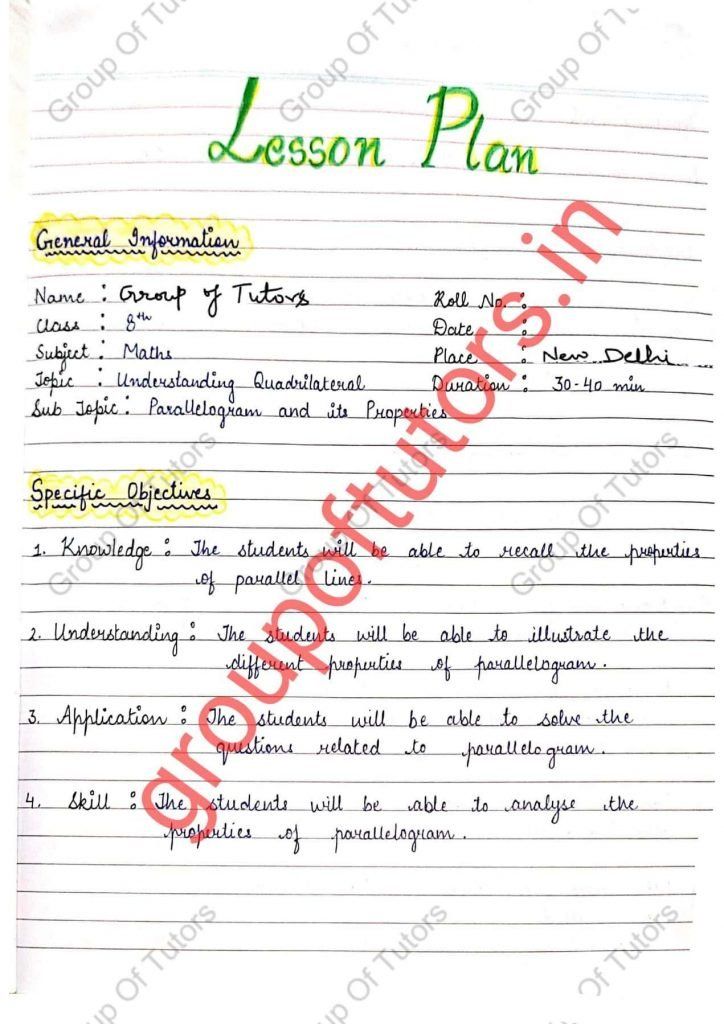 Lesson Plan
General Information
Name : Group of Tutors
Roll No. :
Class : 8th
Date :
Subject : Maths
Place : New Delhi
Topic : Understanding Quadrilateral
Duration : 30-40 min
Sub Topic : Parallelogram and its Properties
Specific Objectives
1. Knowledge : The students will be able to recall the properties
of parallel lines.
2. Understanding : The students will be able to illustrate the
different properties of parallelogram.
3. Application : The students will be able to solve the
questions related to parallelogram.
4. Skill : The students will be able to analyse the
properties of parallelogram.
groupoftutors.in
Group Of Tutors
Group Of Tutors
Group Of T
Group Of Tutors
Group Of Tutors
Group Of Tutors
Group Of Tutors
Group Of Tutors
Group Of Tutors